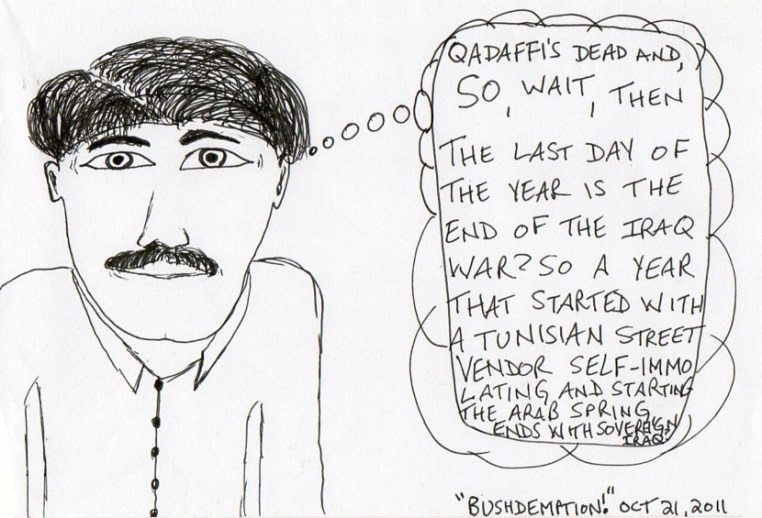 QADAFFI'S DEAD AND,
SO, WAIT, THEN
THE LAST DAY OF
THE YEAR IS THE
END OF THE IRAQ
WAR? SO A YEAR
THAT STARTED WITH
A TUNISIAN STREET
VENDOR SELF-IMMO
LATING AND STARTING
THE ARAB SPRING
ENDS WITH SOVEREIGN
IRAQ?
"BUSHDEMPTION!" OCT 21, 2011